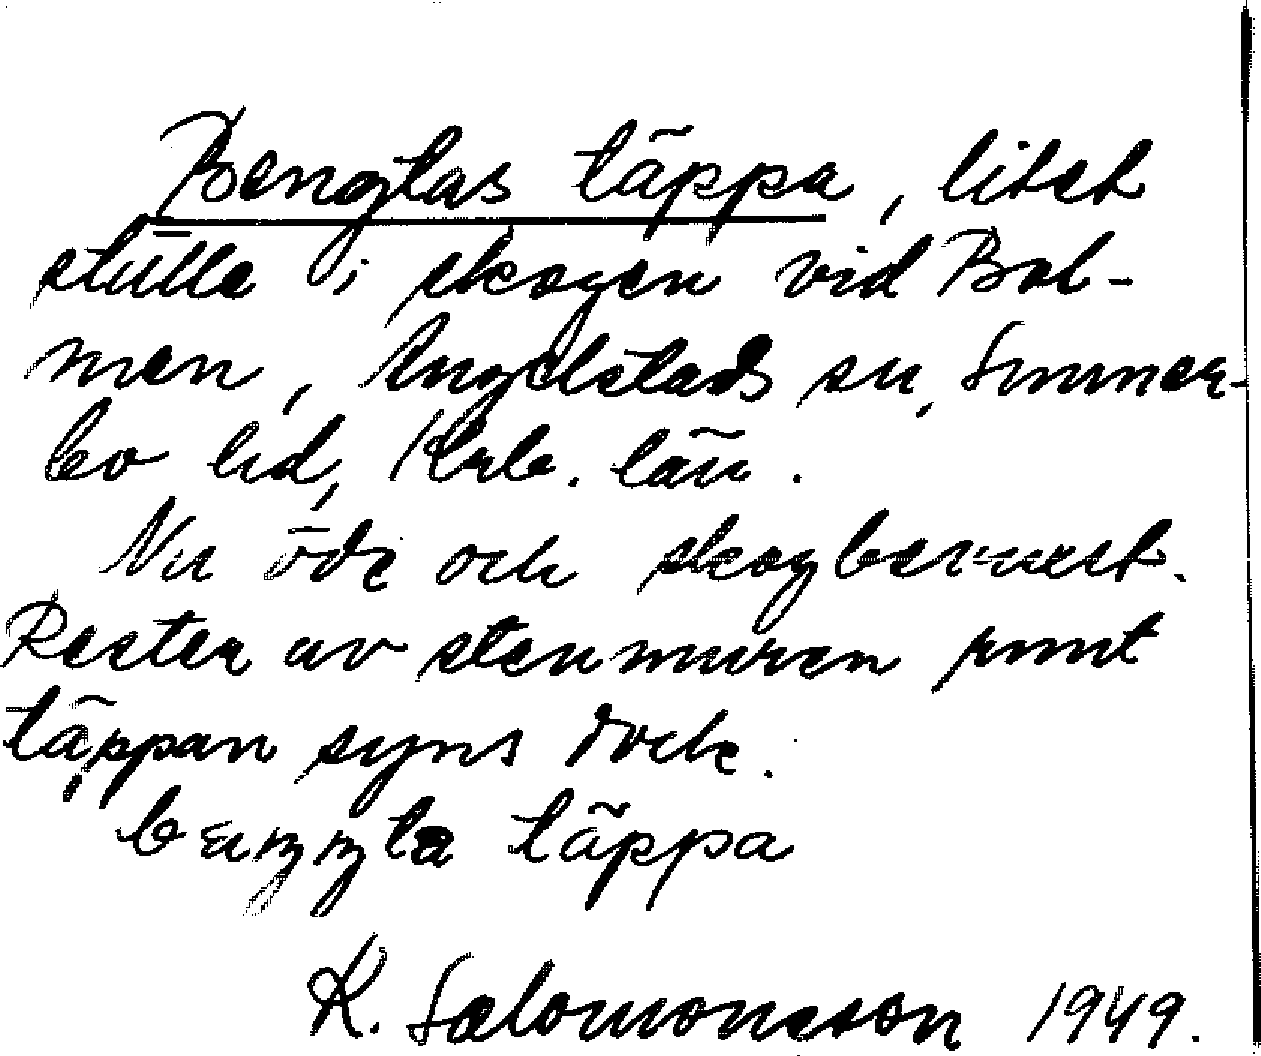 Bengtas täppa, litet
ställe i skogen vid Bol-
men, Angelstads sn, Sunner-
bo hd, Krb. län.
Nu öde och skogbevuxet.
Rester av stenmuren runt
täppan syns dock.
täppa
K. Salomonsson 1949.